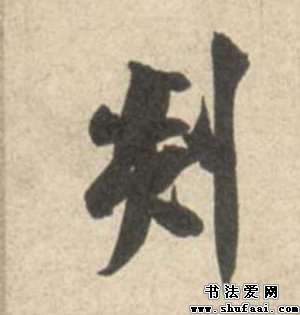 剡
书法爱网
www.shufaai.com